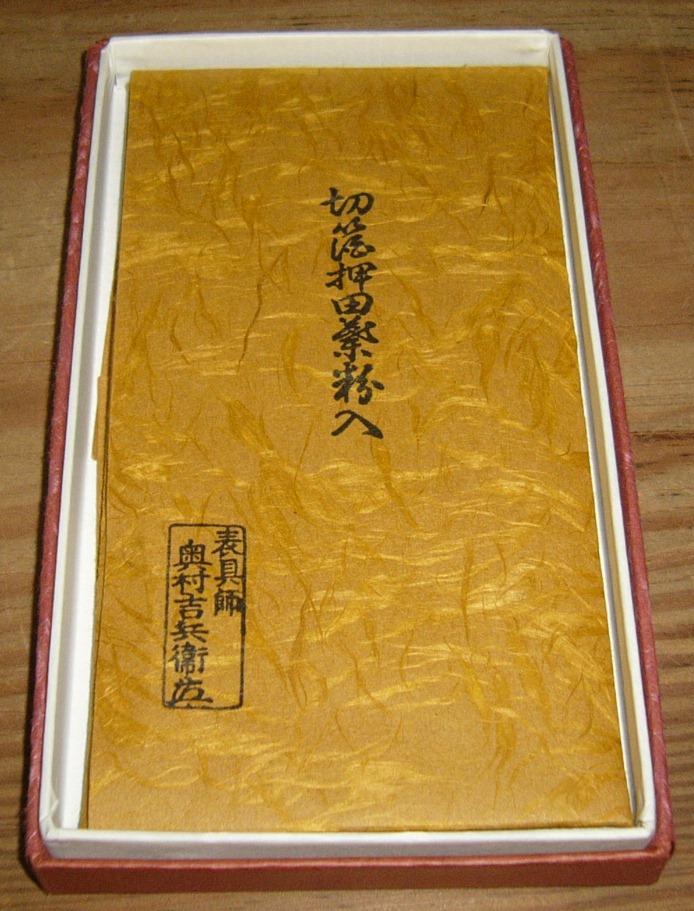 切箔押田葉粉入
表具師
奥村吉兵衛